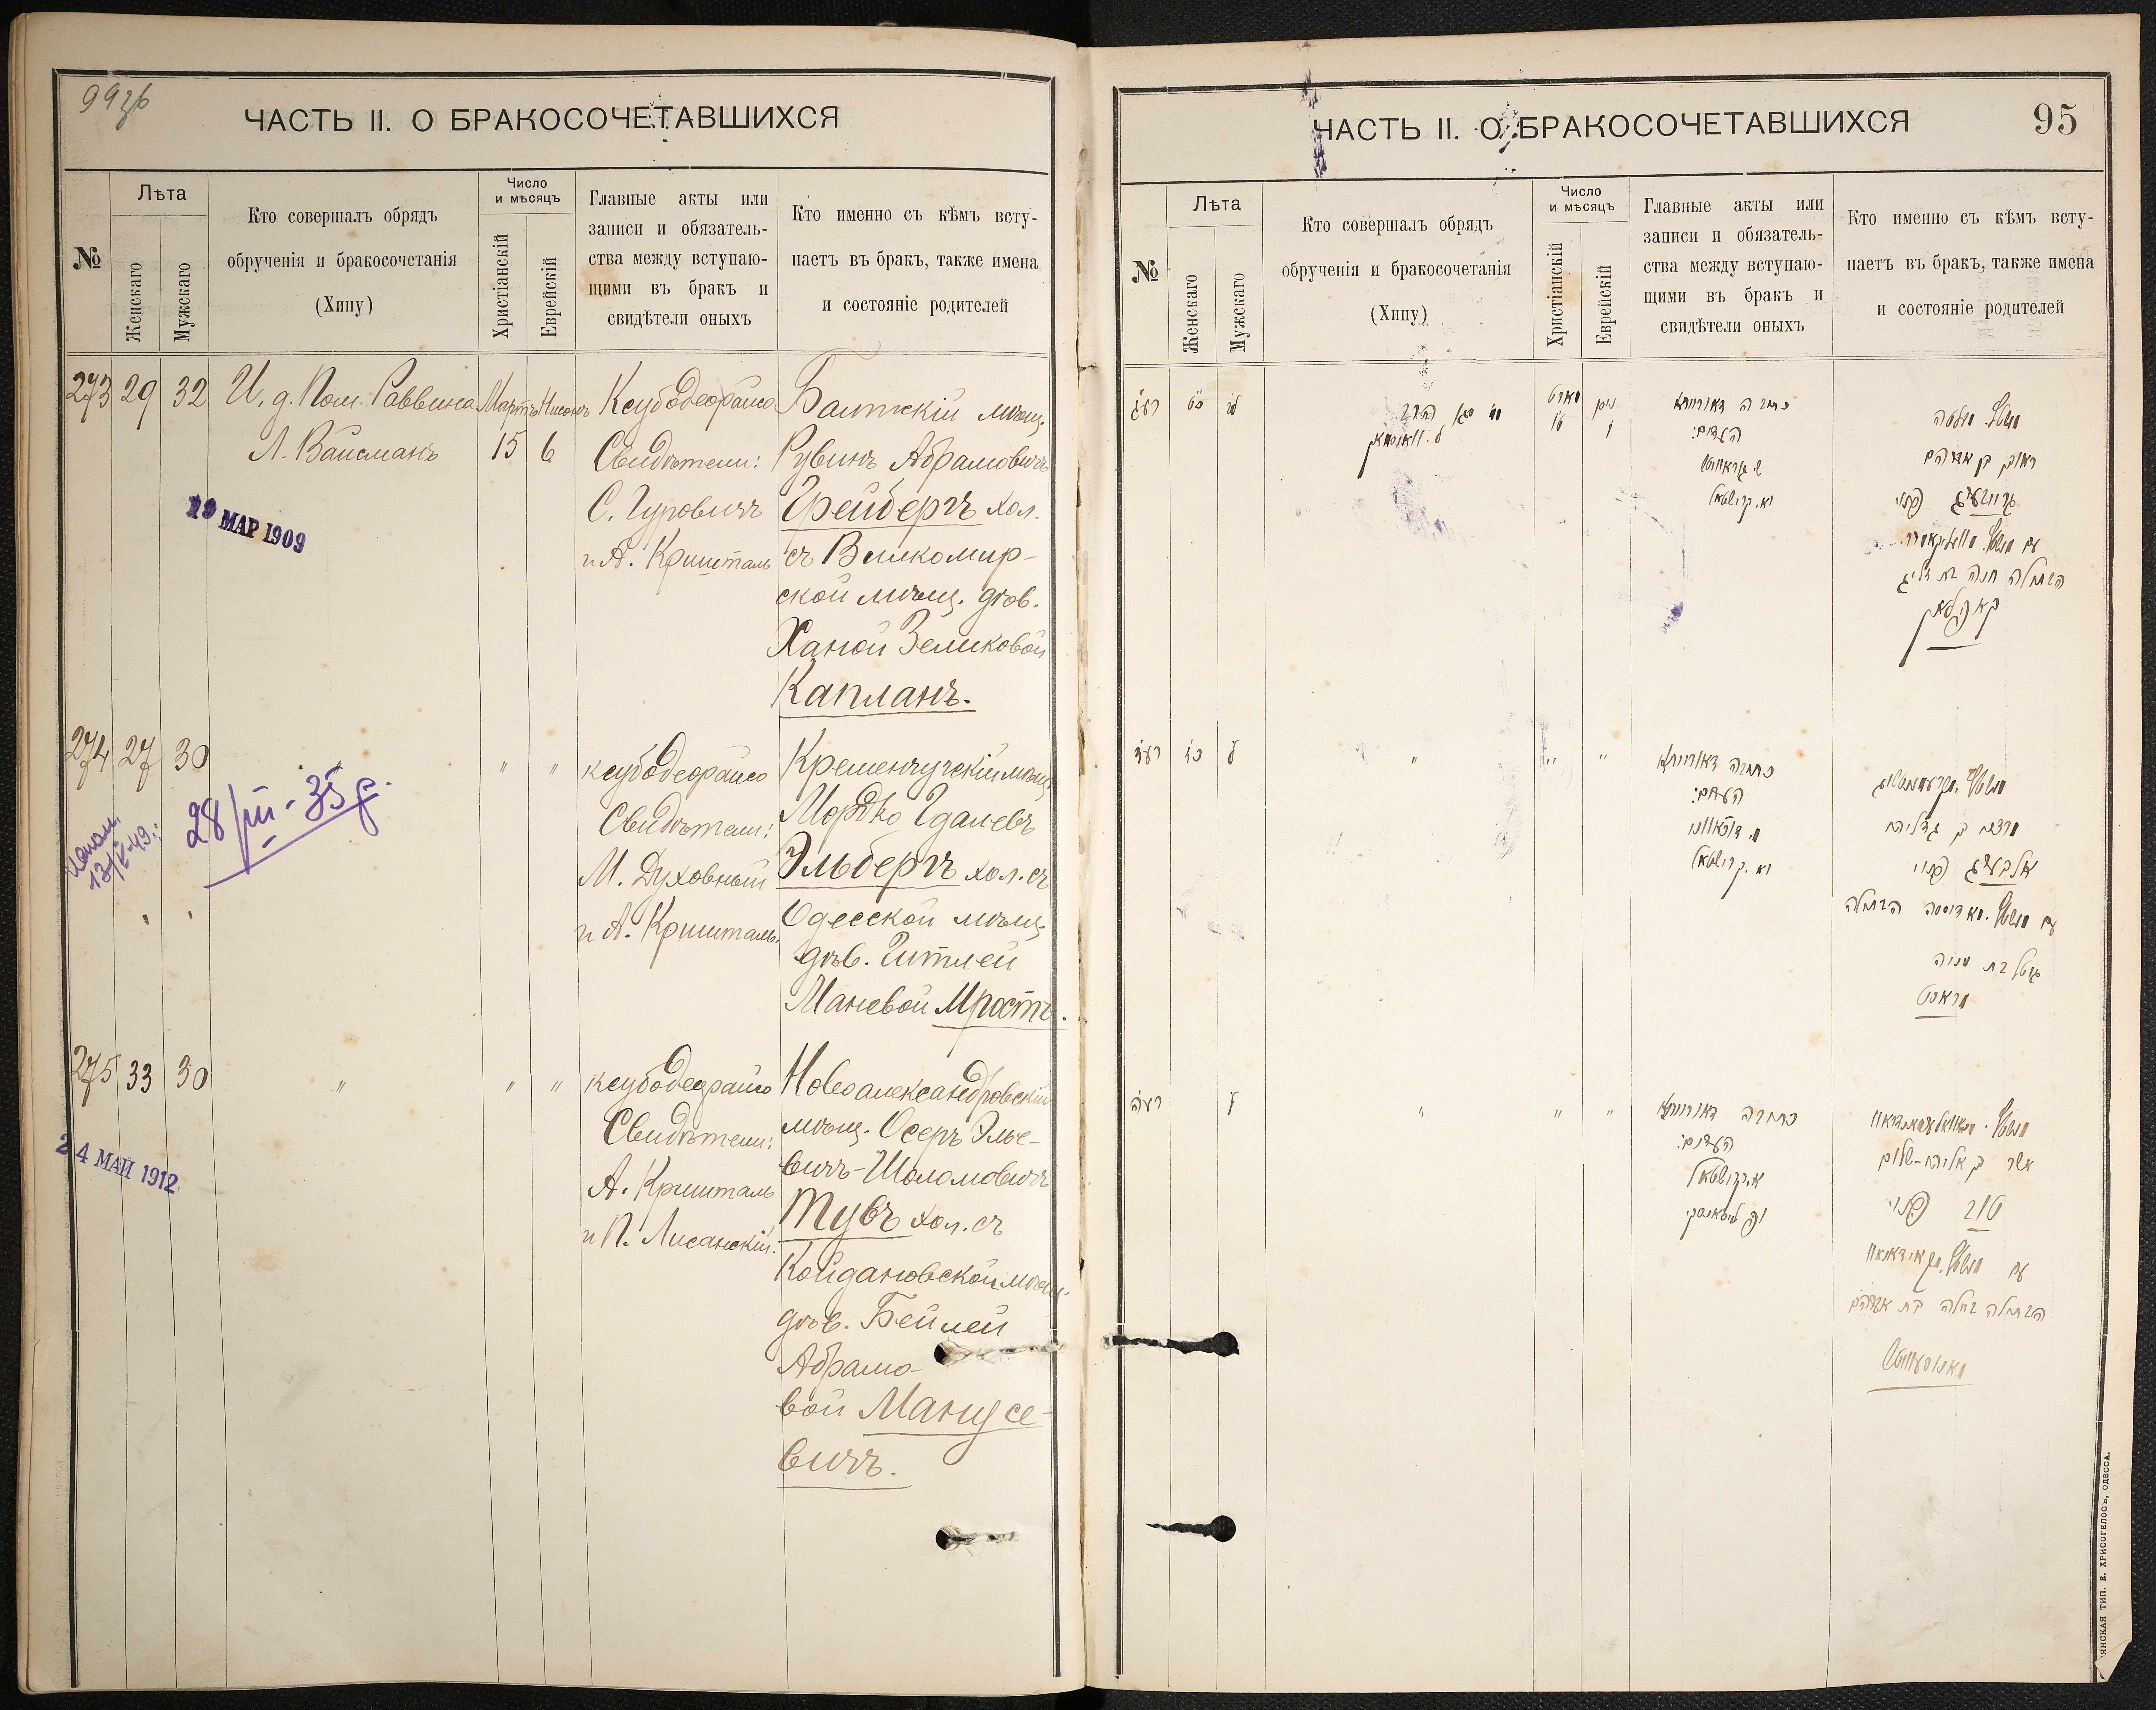 ЧАСТЬ II. О БРАКОСОЧЕТАВШИХСЯ
№
Лѣта
Женскаго
Мужскаго
Кто совершалъ обрядъ
обрученія и бракосочетанія
(Хипу)
Число
и мѣсяцъ
Христіанскій
Еврейскій
Главные акты или
записи и обязатель-
ства между вступаю-
щими въ бракъ и
свидѣтели оныхъ
Кто именно съ кѣмъ всту-
паетъ въ бракъ, также имена
и состояніе родителей
273 29 32
И. д. Пом. Раввина
Л. Вайсманъ
Мартъ Нисонъ
15 6
Ксубодеорайсо
Свидѣтели:
С. Гуровичъ
и А. Кришталь
Балтскій мѣщ.
Рувинъ Абрамовичъ
Грейбергъ хол.
съ Вилкомир-
ской мѣщ. дѣв.
Ханой Зеликовой
Капланъ.
19 МАР 1909
274 27 30
" "
ксубодеорайсо
Свидѣтели:
М. Духовный
и А. Кришталь.
Кременчугскій мѣщ.
Мордко Гдалевъ
Эльбергъ хол. съ
Одесской мѣщ.
дѣв. Гитлей
Маневой Мростъ.
28/III-35 г.
275 33 30
" " "
ксубодеорайсо
Свидѣтели:
А. Кришталь
и П. Лисанскій.
Новоалександровскій
мѣщ. Осеръ Элье-
вичъ-Шоломовичъ
Тувъ хол. съ
Койдановской мѣщ.
дѣв. Бейлей
Абрамо-
вой Манусе-
вичъ.
24 МАЙ 1912
ЧАСТЬ II. О БРАКОСОЧЕТАВШИХСЯ
95
№
Лѣта
Женскаго
Мужскаго
Кто совершалъ обрядъ
обрученія и бракосочетанія
(Хипу)
Число
и мѣсяцъ
Христіанскій
Еврейскій
Главные акты или
записи и обязатель-
ства между вступаю-
щими въ бракъ и
свидѣтели оныхъ
Кто именно съ кѣмъ всту-
паетъ въ бракъ, также имена
и состояніе родителей
רעג כט לב
מארט ניסן
15 ו
ל. וואיסמאן
כתובה דאורייתא
העדים:
וא. קרישטאל
ראובן בן אברהם
גרייבערג פנוי
הבתולה חנה בת זליג
קאפלאן
רעד כז ל
" " "
כתובה דאורייתא
העדים:
וא. קרישטאל
מרדכי בן גדליהו
אלבערג פנוי
גיטל בת מניה
מראסט
רעה ל
" " "
כתובה דאורייתא
העדים:
א. קרישטאל
ופ. ליסאנסקי
אשר בן אליהו-שלום
טוב פנוי
הבתולה ביילה בת אברהם
מאנוסעוויטש